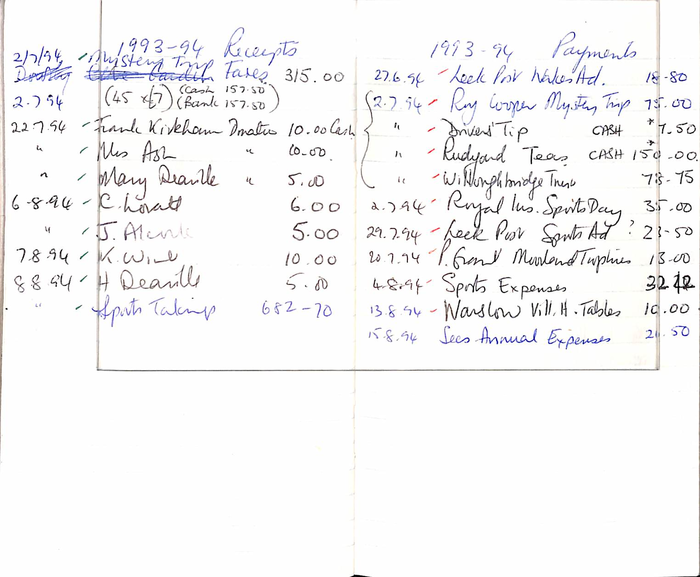 1993-94 Receipts
2/7/94 Mystery Trip
Fares 315.00
2.7.94 (45 x £7) (Cash 157.50)
(Bank 157.50)
22.7.94 Frank Kirkham Donation 10.00 Cash
" Mrs Ash " 10.00
" Mary Deaville " 5.00
6-8.94 C. Lovatt 6.00
" J. 5.00
7.8.94 K. 10.00
8.8.94 H Deaville 5.00
" Sports Takings 682-70
1993-94 Payments
27.6.94 Leek Post Wakes Ad. 18-80
2.7.94 Roy Cooper Mystery Trip 75.00
" Drivers Tip CASH 7.50
" Rudyard Teas CASH 150.00
" Willoughbridge
2.7.94 Royal Ins. Sports Day 35.00
29.7.94 Leek Post Sports Ad ? 23-50
P. Grant Moorland Trophies 13.00
4.8.94 Sports Expenses
13.8.94 Warslow Vill. H. Tables 10.00
15.8.94 Secs Annual Expenses